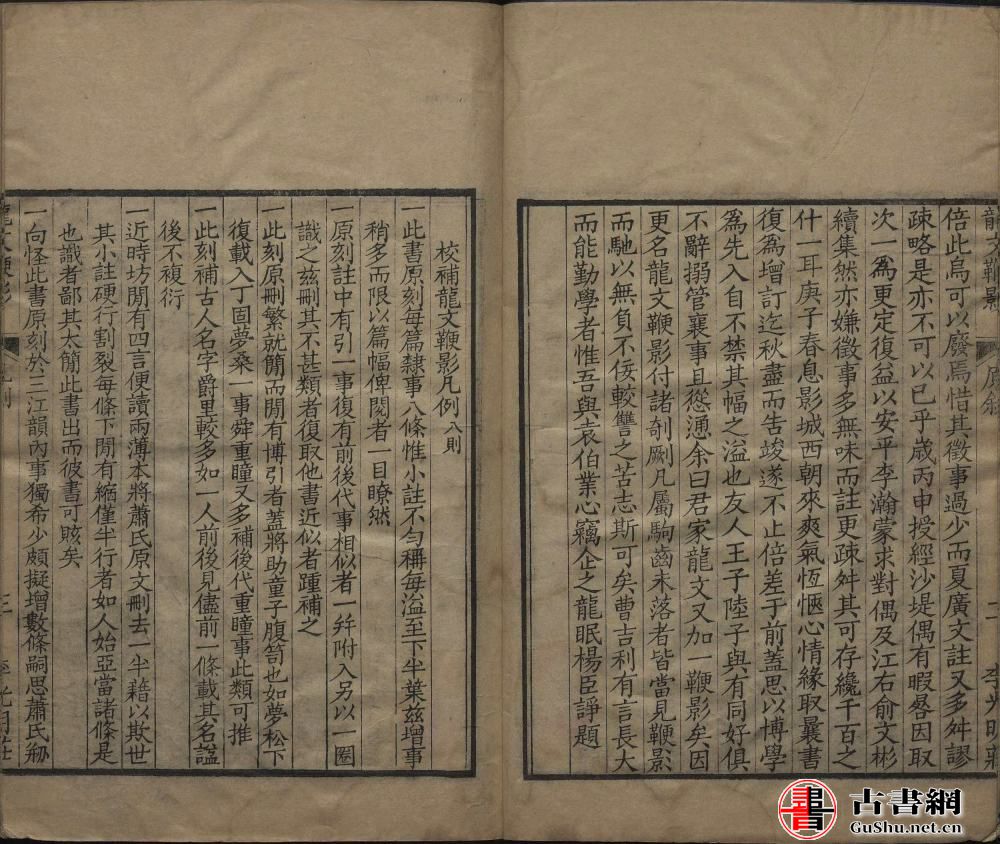 龍文鞭影
二
李光明莊
倍此烏可以廢焉惜其徵事過少而夏廣文註又多舛謬
疎略是亦不可以已乎歲丙申授經沙堤偶有暇晷因取
次一為更定復益以安平李瀚蒙求對偶及江右俞文彬
續集然亦嫌徵事多無味而註更疎舛其可存纔千百之
什一耳庚子春息影城西朝來爽氣恆愜心情緣取曩書
復為增訂迄秋盡而告竣遂不止倍差于前蓋思以博學
為先入自不禁其幅之溢也友人王子陸子與有同好俱
不辭搦管襄事且慫慂余曰君家龍文又加一鞭影矣因
更名龍文鞭影付諸剞劂凡屬駒齒未落者皆當見鞭影
而馳以無負不佞較讐之苦志斯可矣曹吉利有言長大
而能勤學者惟吾與袁伯業心竊企之龍眠楊臣諍題
校補龍文鞭影凡例八則
一此書原刻每篇隸事八條惟小註不勻稱每溢至下半葉茲增事
稍多而限以篇幅俾閱者一目瞭然
一原刻註中有引一事復有前後代事相似者一幷附入另以一圈
識之茲刪其不甚類者復取他書近似者踵補之
一此刻原刪繁就簡而閒有博引者蓋將助童子腹笥也如夢松下
復載入丁固夢桑一事舜重瞳又多補後代重瞳事此類可推
一此刻補古人名字爵里較多如一人前後見儘前一條載其名諡
後不複衍
一近時坊閒有四言便讀兩薄本將蕭氏原文刪去一半藉以欺世
其小註硬行割裂每條下閒有縮僅半行者如人始亞當諸條是
也識者鄙其太簡此書出而彼書可賅矣
一向怪此書原刻於三江韻內事獨希少頗擬增數條嗣思蕭氏刱
龍文鞭影
三
李光明莊
書
古書網
GuShu.net.cn